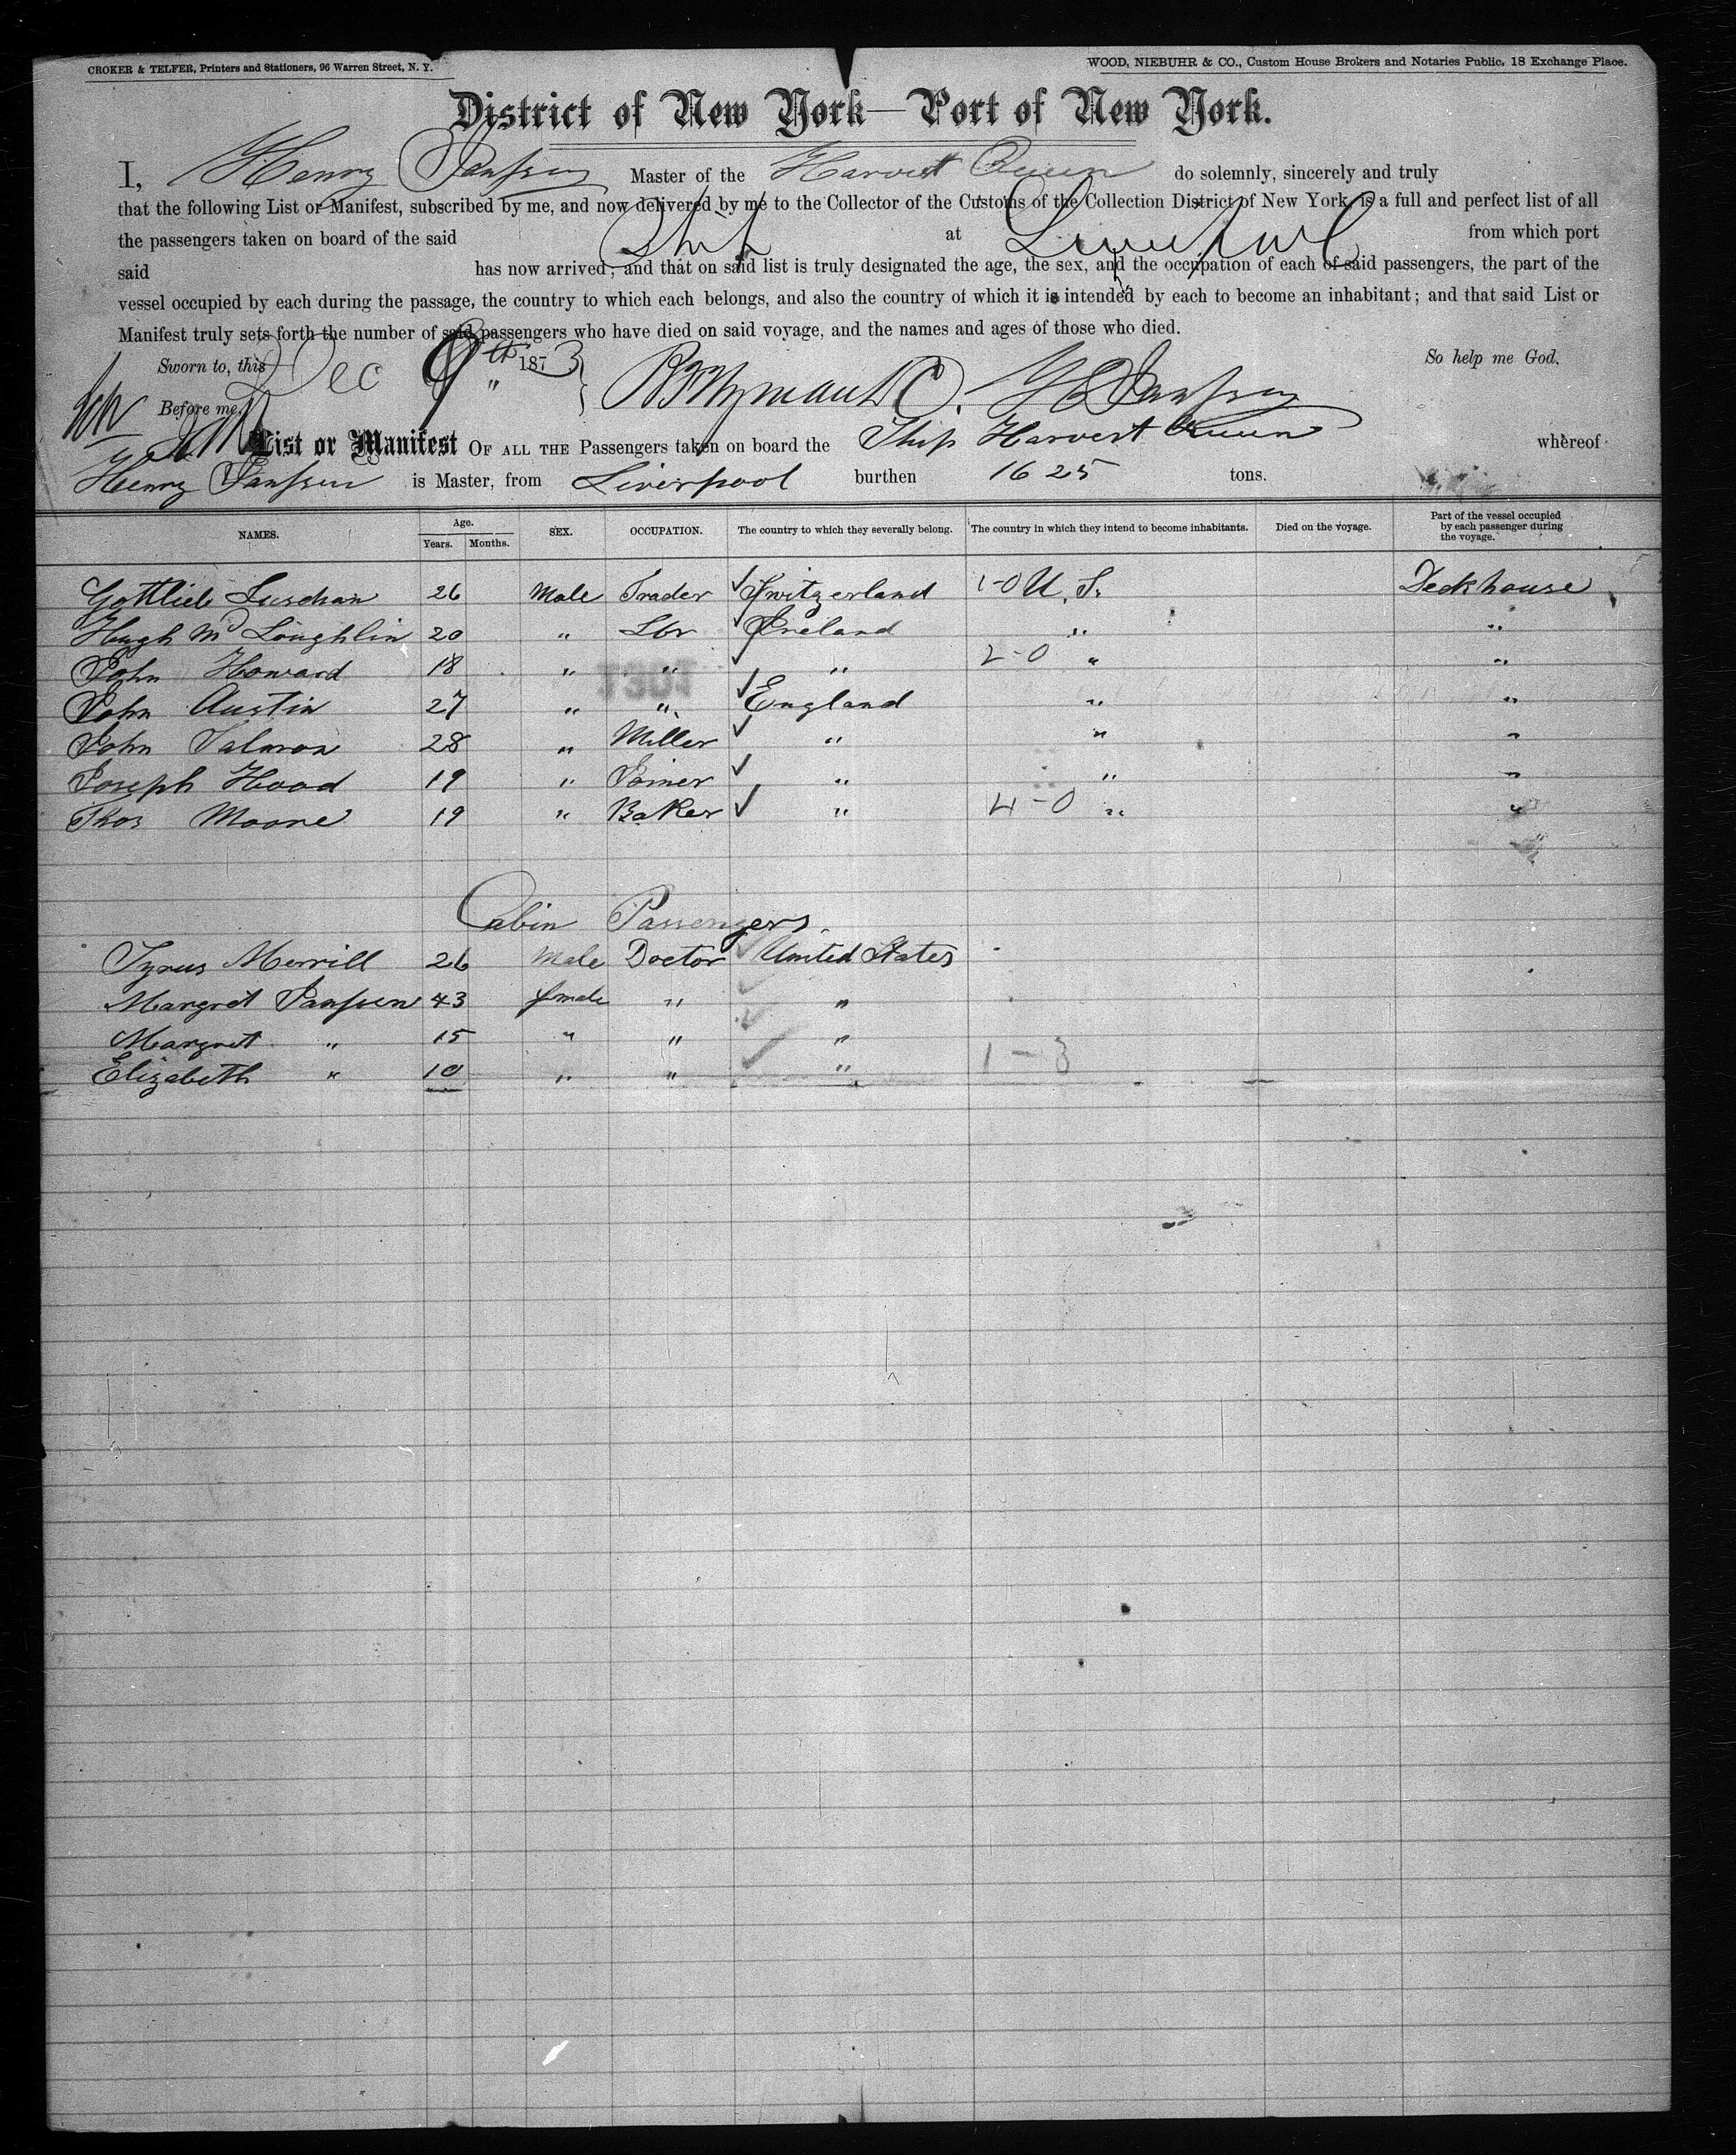 CROKER & TELFER, Printers and Stationers, 96 Warren Street, N. Y.
WOOD, NIEBUHR & CO., Custom House Brokers and Notaries Public, 18 Exchange Place.
District of New York—Port of New York.
I, Henry Janssen Master of the Harvest Queen do solemnly, sincerely and truly
that the following List or Manifest, subscribed by me, and now delivered by me to the Collector of the Customs of the Collection District of New York, is a full and perfect list of all
the passengers taken on board of the said Ship at Liverpool from which port
said has now arrived; and that on said list is truly designated the age, the sex, and the occupation of each of said passengers, the part of the
vessel occupied by each during the passage, the country to which each belongs, and also the country of which it is intended by each to become an inhabitant; and that said List or
Manifest truly sets forth the number of said passengers who have died on said voyage, and the names and ages of those who died.
Sworn to, this Dec 9th 1873 So help me God.
Before me, " H Janssen
List or Manifest OF ALL THE Passengers taken on board the Ship Harvest Queen whereof
Henry Janssen is Master, from Liverpool burthen 1625 tons.
NAMES. Age. Years. Months. SEX. OCCUPATION. The country to which they severally belong. The country in which they intend to become inhabitants. Died on the voyage. Part of the vessel occupied by each passenger during the voyage.
Gottlieb 26 Male Trader ✓ Switzerland 1-0 U. S. Deckhouse
Hugh McLoughlin 20 " Lbr ✓ Ireland " "
John Howard 18 " " ✓ " 2-0 " "
John Austin 27 " " ✓ England " "
John Salmon 28 " Miller ✓ " " "
Joseph Hood 19 " Joiner ✓ " " "
Thos Moore 19 " Baker ✓ " 4-0 " "
Cabin Passengers.
Tyrus Merrill 26 Male Doctor ✓ United States
Margret Janssen 43 female " ✓ "
Margret " 15 " " ✓ "
Elizabeth " 10 " " ✓ " 1-3